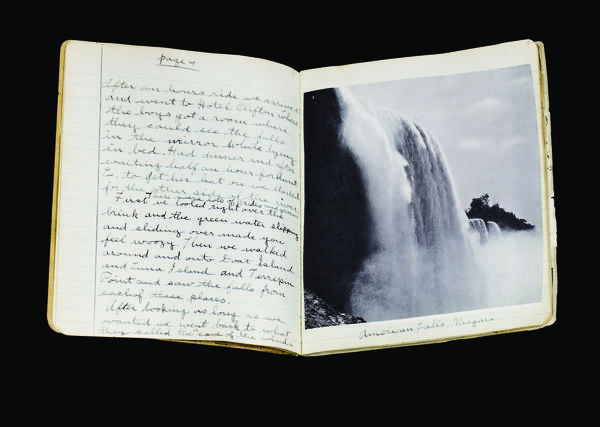 page 4
After an hours ride we arrived
and went to Hotel Clifton where
the boys got a room where
they could see the falls
in the mirror while lying
in bed. Had dinner and after
waiting half an hour for Aunt
E. to get her hat on we started
for the other side of the river.
There were lots of brides and grooms
First we looked right over the
brink and the green water slipping
and sliding over made you
feel woozy. Then we walked
around and onto Goat Island
and Luna Island and Terrepin
Point and saw the falls from
each of these places.
After looking as long as we
wanted we went back to what
they called the "cave of the winds
American Falls, Niagara